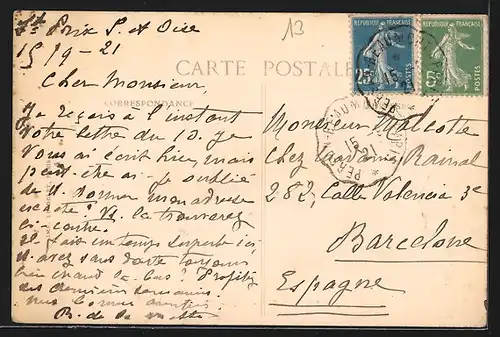 St Prix S. et Oise
15/9-21
13
CARTE POSTALE
CORRESPONDANCE
REPUBLIQUE FRANÇAISE
25c
POSTES
REPUBLIQUE FRANÇAISE
5c
POSTES
Cher Monsieur,
Je reçois à l'instant
votre lettre du 10. Je
vous ai écrit hier, mais
peut-être ai-je oublié
de v. donner mon adresse
exacte! V. la trouverez
ci-contre.
Il fait un temps superbe ici,
v. avez sans doute toujours
bien chaud là-bas? Profitez
des dernières semaines.
Mes bonnes amitiés
R. de la
Monsieur Malcotte
chez Madame Rainal
282, Calle Valencia 3e
Barcelone
Espagne